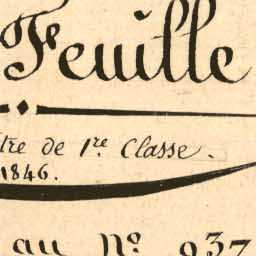 Feuille
tre de 1re. Classe.
1846.
au No. 937